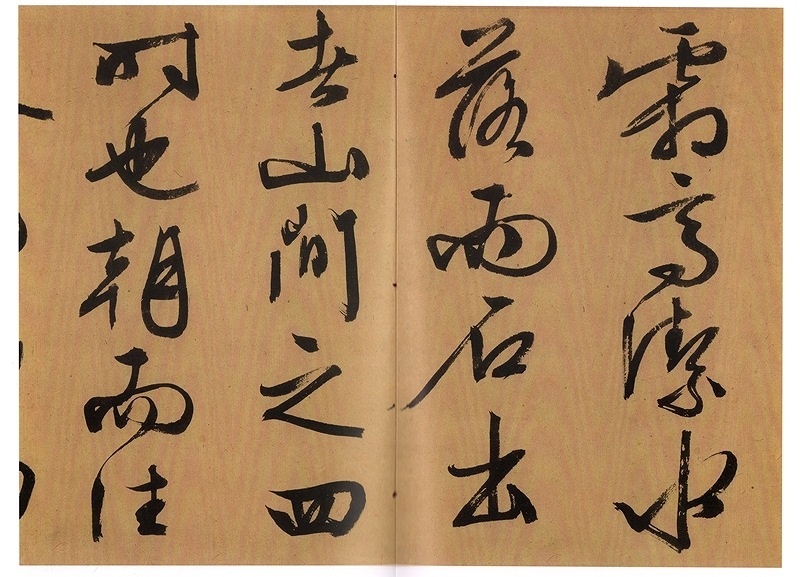 霜高潔水
落而石出
者山間之四
时也朝而往